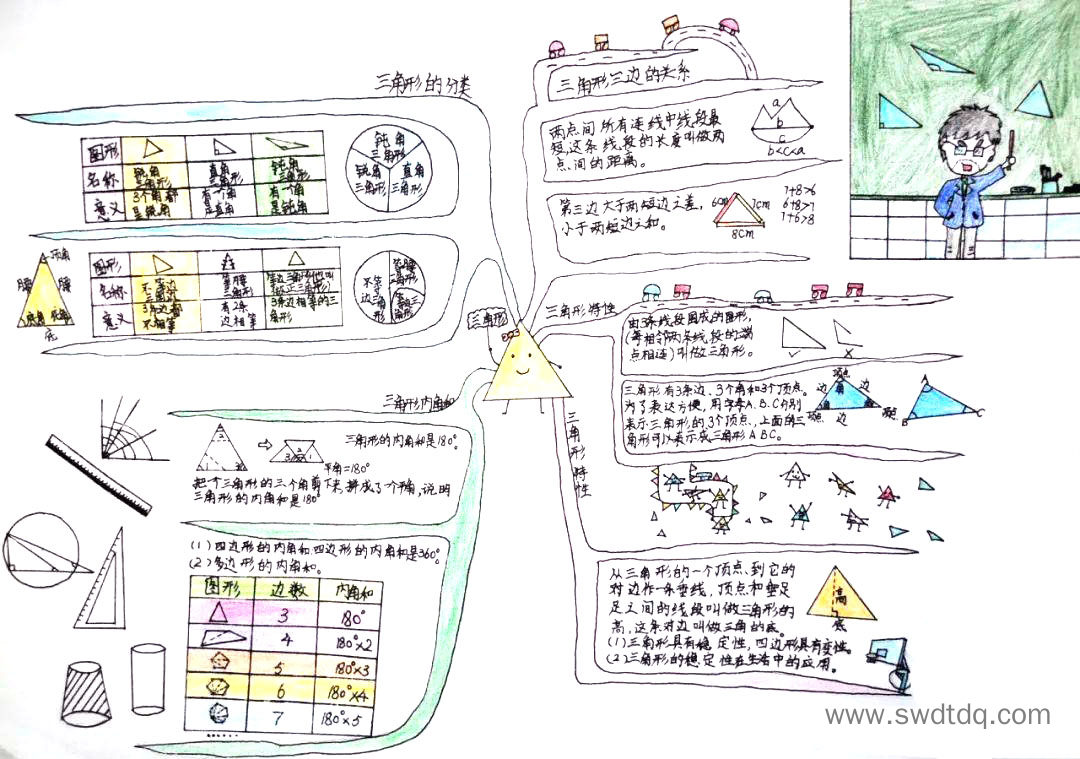 三角形的分类
图形
名称 锐角三角形 直角三角形 钝角三角形
意义 3个角都是锐角 有一个角是直角 有一个角是钝角
钝角三角形
锐角三角形
直角三角形
顶角
腰 腰
底角 底角
底
图形
名称 不等边三角形 等腰三角形 等边三角形(也叫做正三角形)
意义 3条边都不相等 有2条边相等 3条边相等的三角形
不等边三角形
等腰三角形
三角形
三角形内角和
三角形的内角和是180°
平角=180°
把一个三角形的三个角剪下来,拼成了一个平角,说明
三角形的内角和是180°
(1)四边形的内角和.四边形的内角和是360°
(2)多边形的内角和。
图形 边数 内角和
3 180°
4 180°×2
5 180°×3
6 180°×4
7 180°×5
……
三角形三边的关系
两点间所有连线中线段最
短,这条线段的长度叫做两
点间的距离。
a
b
c
b<c<a
第三边大于两短边之差,
小于两短边之和。
6cm 7cm
8cm
7+8>6
6+8>7
7+6>8
三角形特性
由3条线段围成的图形,
(每相邻两条线段的端
点相连)叫做三角形。
三角形有3条边、3个角和3个顶点。
为了表达方便,用字母A.B.C分别
表示三角形的3个顶点,上面的三
角形可以表示成三角形ABC。
顶点
边 角 边
顶点 边 顶点
A
B C
三角形特性
从三角形的一个顶点、到它的
对边作一条垂线,顶点和垂足
足之间的线段叫做三角形的
高,这条对边叫做三角的底。
(1)三角形具有稳定性,四边形具有变性。
(2)三角形的稳定性在生活中的应用。
高
底
www.swdtdq.com